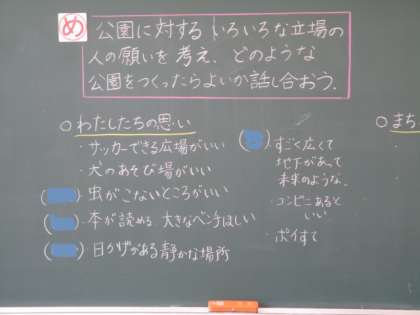 め
公園に対するいろいろな立場の
人の願いを考え、どのような
公園をつくったらよいか話し合おう。
○わたしたちの思い
・サッカーできる広場がいい
・犬のあそび場がいい
( )虫がこないところがいい
( )本が読める 大きなベンチほしい
( )日かげがある静かな場所
( )すごく広くて
地下があって
未来のような。
・コンビニあると
いい
・ポイすて
○まち